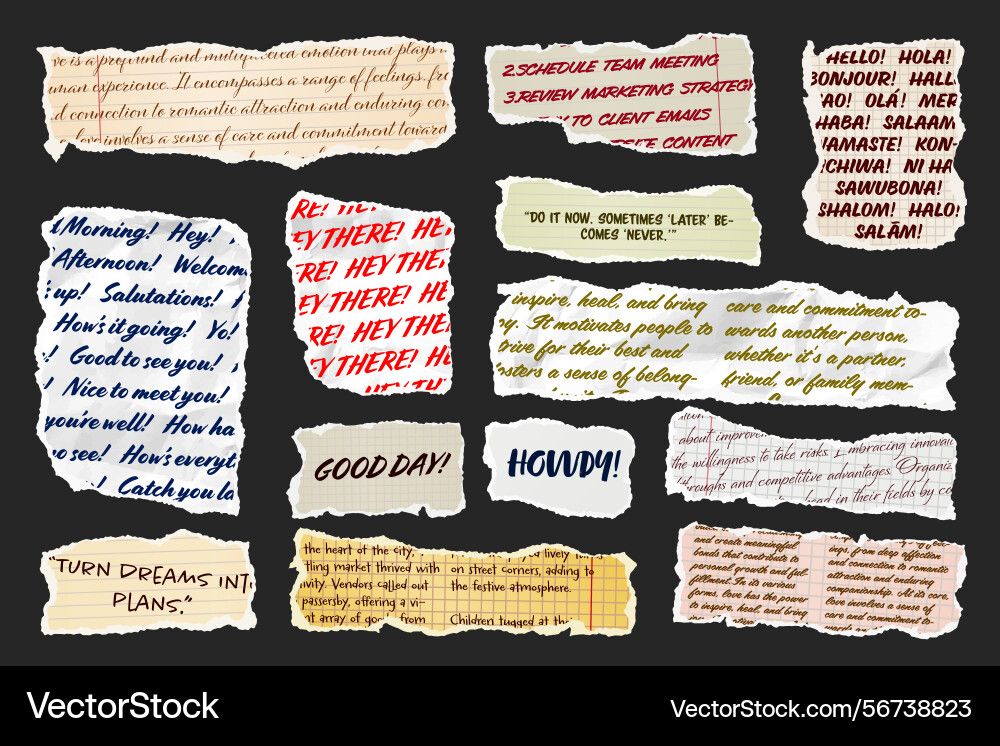 ve is a profound and emotion that plays
uman experience. It encompasses a range of feelings, fr
d connection to romantic attraction and enduring con
love involves a sense of care and commitment toward
2.SCHEDULE TEAM MEETING
3.REVIEW MARKETING STRATEGY
TO CLIENT EMAILS
CONTENT
HELLO! HOLA!
BONJOUR! HALL
AO! OLÁ! MER
HABA! SALAAM
NAMASTE! KON-
ICHIWA! NI HA
SAWUBONA!
SHALOM! HALO!
SALĀM!
Morning! Hey!
Afternoon! Welcome
up! Salutations!
How's it going! Yo!
Good to see you!
Nice to meet you!
you're well! How ha
o see! How's everyt
Catch you la
RE! HE
EY THERE! HE
RE! HEY THE
EY THERE! HE
RE! HEY THE
EY THERE! HE
HEY TH
"DO IT NOW. SOMETIMES 'LATER' BE-
COMES 'NEVER.'"
inspire, heal, and bring
oy. It motivates people to
trive for their best and
osters a sense of belong-
care and commitment to-
wards another person,
whether it's a partner,
friend, or family mem-
GOOD DAY!
HOWDY!
about improve
the willingness to take risks. Embracing innovati
throughs and competitive advantages. Organiz
head in their fields by co
"TURN DREAMS INT
PLANS."
the heart of the city,
tling market thrived with
ivity. Vendors called out
passersby, offering a vi-
nt array of goo from
lively
on street corners, adding to
the festive atmosphere.
Children tugged at th
and create meaningful
bonds that contribute to
personal growth and ful-
fillment. In its various
forms, love has the power
to inspire, heal, and bring
ings, from deep affection
and connection to romantic
attraction and enduring
companionship. At its core,
love involves a sense of
care and commitment to-
wards an
VectorStock
VectorStock.com/56738823